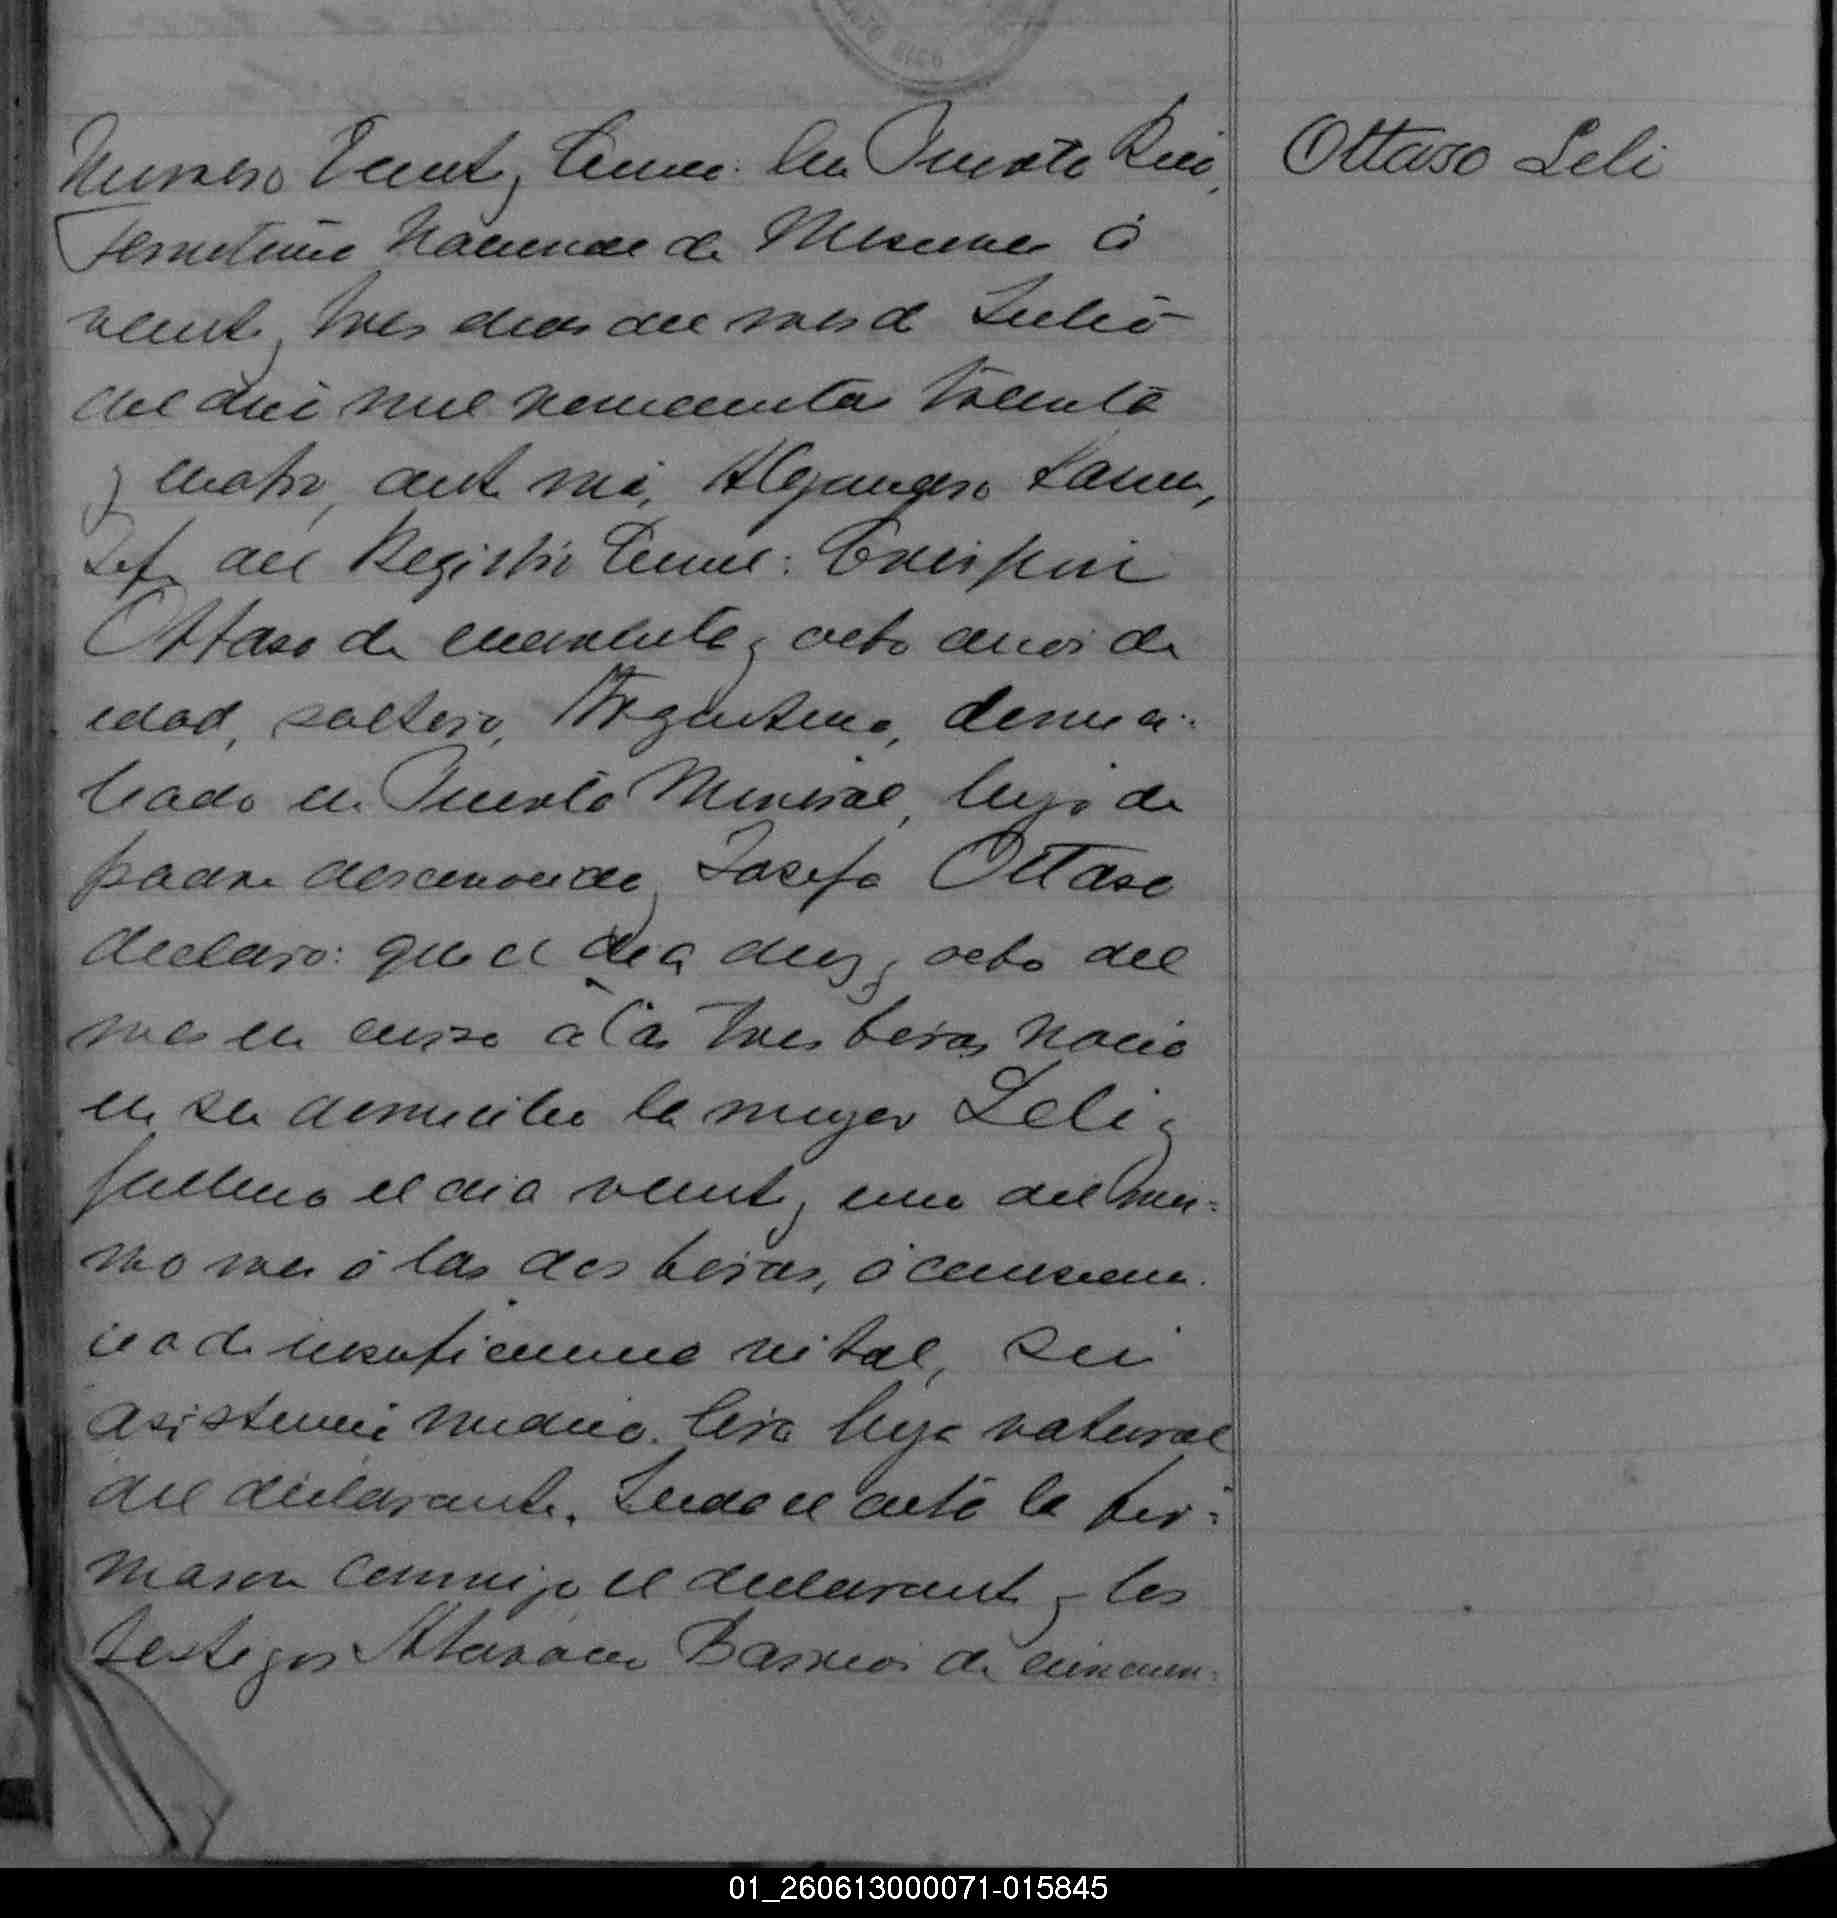 Numero Veinte y Cinco: En Puerto Rico,
Territorio Nacional de Misiones á
veinte y tres dias del mes de Julio
del año mil novecientos treinta
y cuatro, ante mi, Alejandro
Jefe del Registro Civil: Crispin
Ottaso de cuarenta y ocho años de
edad, soltero, Argentino, domici-
liado en Puerto Mineral, hijo de
padre desconocido y Josefa Ottaso
declaro: que el dia diez y ocho del
mes en curso á las tres horas nació
en su domicilio la mujer Leli y
falleció el dia veinte y uno del mis-
mo mes á las dos horas, á consecuen-
cia de insuficiencia vital, sin
asistencia medica. Era hija natural
del declarante. Leida el acta la fir-
maron conmigo el declarante y los
testigos Barrios de cincuen-
Ottaso Leli
01_260613000071-015845